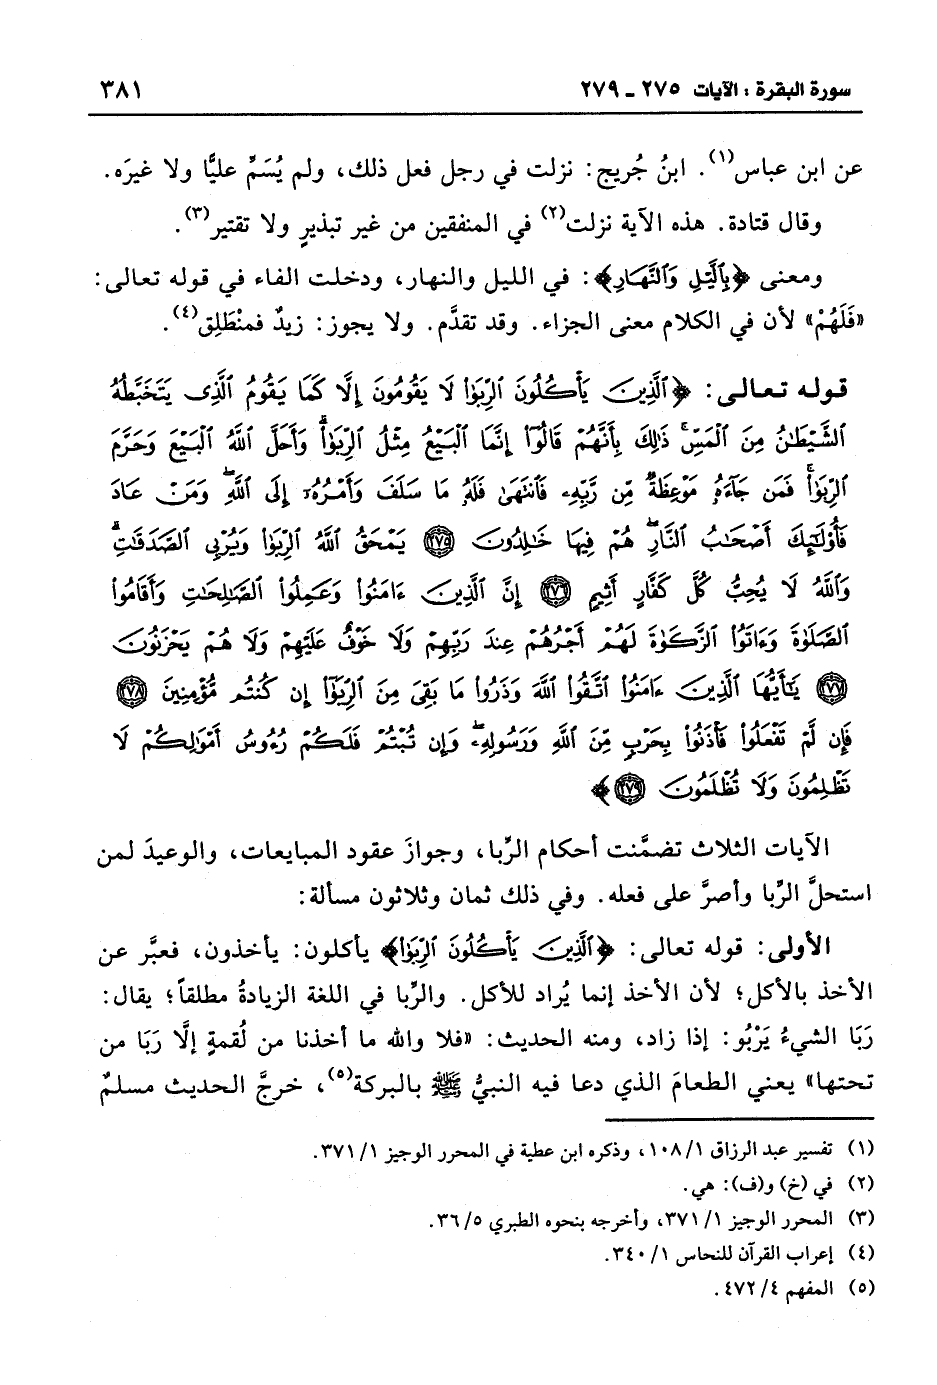 سورة البقرة : الآيات ٢٧٥ ـ ٢٧٩
٣٨١
عن ابن عباس(١). ابنُ جُريج: نزلت في رجل فعل ذلك، ولم يُسَمِّ عليًّا ولا غيرَه.
وقال قتادة. هذه الآية نزلت(٢) في المنفقين من غير تبذيرٍ ولا تقتير(٣).
ومعنى ﴿بِالَّيْلِ وَالنَّهَارِ﴾: في الليل والنهار، ودخلت الفاء في قوله تعالى:
«فَلَهُمْ» لأن في الكلام معنى الجزاء. وقد تقدَّم. ولا يجوز: زيدٌ فمنْطَلِق(٤).
قوله تعالى: ﴿ٱلَّذِينَ يَأْكُلُونَ ٱلرِّبَوٰا۟ لَا يَقُومُونَ إِلَّا كَمَا يَقُومُ ٱلَّذِى يَتَخَبَّطُهُ
ٱلشَّيْطَٰنُ مِنَ ٱلْمَسِّ ۚ ذَٰلِكَ بِأَنَّهُمْ قَالُوٓا۟ إِنَّمَا ٱلْبَيْعُ مِثْلُ ٱلرِّبَوٰا۟ ۗ وَأَحَلَّ ٱللَّهُ ٱلْبَيْعَ وَحَرَّمَ
ٱلرِّبَوٰا۟ ۚ فَمَن جَآءَهُۥ مَوْعِظَةٌ مِّن رَّبِّهِۦ فَٱنتَهَىٰ فَلَهُۥ مَا سَلَفَ وَأَمْرُهُۥٓ إِلَى ٱللَّهِ ۖ وَمَنْ عَادَ
فَأُو۟لَٰٓئِكَ أَصْحَٰبُ ٱلنَّارِ ۖ هُمْ فِيهَا خَٰلِدُونَ ﴿٢٧٥﴾ يَمْحَقُ ٱللَّهُ ٱلرِّبَوٰا۟ وَيُرْبِى ٱلصَّدَقَٰتِ ۗ
وَٱللَّهُ لَا يُحِبُّ كُلَّ كَفَّارٍ أَثِيمٍ ﴿٢٧٦﴾ إِنَّ ٱلَّذِينَ ءَامَنُوا۟ وَعَمِلُوا۟ ٱلصَّٰلِحَٰتِ وَأَقَامُوا۟
ٱلصَّلَوٰةَ وَءَاتَوُا۟ ٱلزَّكَوٰةَ لَهُمْ أَجْرُهُمْ عِندَ رَبِّهِمْ وَلَا خَوْفٌ عَلَيْهِمْ وَلَا هُمْ يَحْزَنُونَ
﴿٢٧٧﴾ يَٰٓأَيُّهَا ٱلَّذِينَ ءَامَنُوا۟ ٱتَّقُوا۟ ٱللَّهَ وَذَرُوا۟ مَا بَقِىَ مِنَ ٱلرِّبَوٰٓا۟ إِن كُنتُم مُّؤْمِنِينَ ﴿٢٧٨﴾
فَإِن لَّمْ تَفْعَلُوا۟ فَأْذَنُوا۟ بِحَرْبٍ مِّنَ ٱللَّهِ وَرَسُولِهِۦ ۖ وَإِن تُبْتُمْ فَلَكُمْ رُءُوسُ أَمْوَٰلِكُمْ لَا
تَظْلِمُونَ وَلَا تُظْلَمُونَ ﴿٢٧٩﴾﴾
الآيات الثلاث تضمَّنت أحكام الرِّبا، وجوازَ عقود المبايعات، والوعيدَ لمن
استحلَّ الرِّبا وأصرَّ على فعله. وفي ذلك ثمان وثلاثون مسألة:
الأولى: قوله تعالى: ﴿ٱلَّذِينَ يَأْكُلُونَ ٱلرِّبَوٰا۟﴾ يأكلون: يأخذون، فعبَّر عن
الأخذ بالأكل؛ لأن الأخذ إنما يُراد للأكل. والرِّبا في اللغة الزيادةُ مطلقاً؛ يقال:
رَبَا الشيءُ يَرْبُو: إذا زاد، ومنه الحديث: «فلا والله ما أخذنا من لُقمةٍ إلَّا رَبَا من
تحتها» يعني الطعامَ الذي دعا فيه النبيُّ ﷺ بالبركة(٥)، خرجَّ الحديث مسلمٌ
(١) تفسير عبد الرزاق ١٠٨/١، وذكره ابن عطية في المحرر الوجيز ٣٧١/١.
(٢) في (خ) و(ف): هي.
(٣) المحرر الوجيز ٣٧١/١، وأخرجه بنحوه الطبري ٣٦/٥.
(٤) إعراب القرآن للنحاس ٣٤٠/١.
(٥) المفهم ٤٧٢/٤.